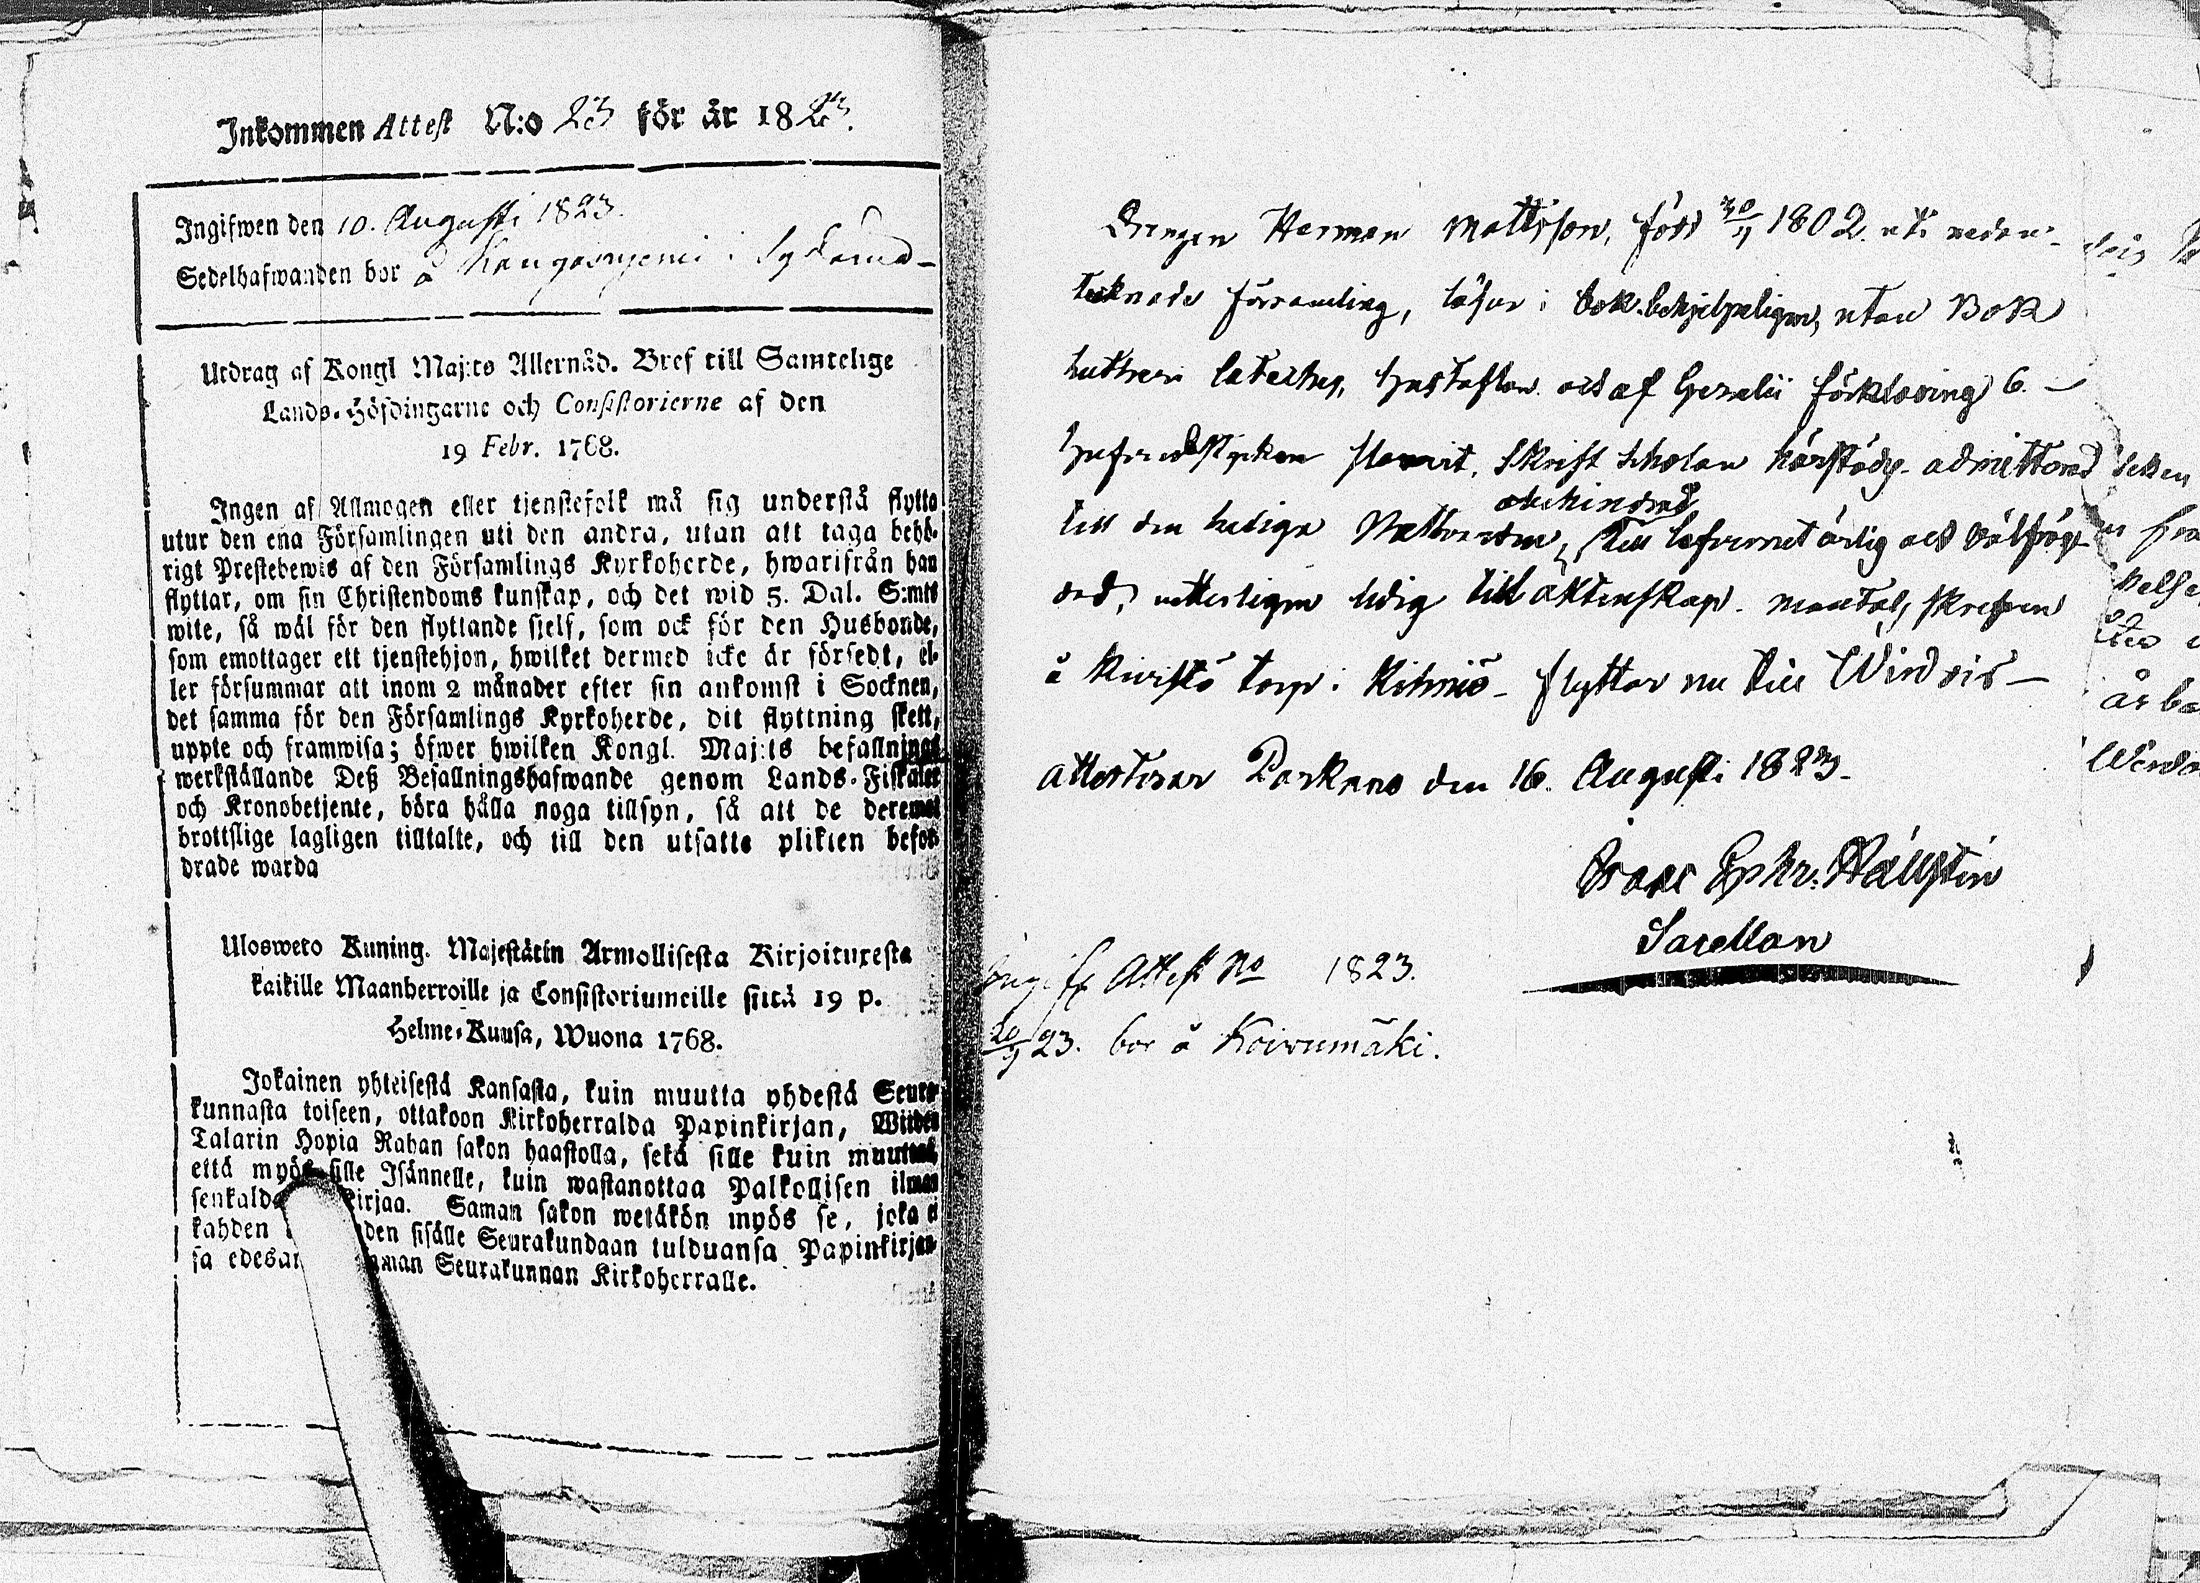 Inkommen Attest N:o 23 för år 1823.
Ingifwen den 10. Augusti 1823.
Sedelhafwanden bor å
Utdrag af Kongl Maj:ts Allernåd. Bref till Samtelige
Lands-Höfdingarne och Consistorierne af den
19 Febr. 1768.
Ingen af Allmogen eller tjenstefolk må sig understå flytta
utur den ena Församlingen uti den andra, utan att taga behö-
rigt Prestebewis af den Församlings Kyrkoherde, hwarifrån han
flyttar, om sin Christendoms kunskap, och det wid 5. Dal. S:mts
wite, så wäl för den flyttande sielf, som ock för den Husbonde,
som emottager ett tjenstehjon, hwilket dermed icke är försedt, el-
ler försummar att inom 2 månader efter sin ankomst i Socknen,
det samma för den Församlings Kyrkoherde, dit flyttning skett,
uppte och framwisa; öfwer hwilken Kongl. Maj:ts befallnings
werkställande Deß Befallningshafwande genom Lands-Fiskaler
och Kronobetjente, böra hålla noga tillsyn, så att de deremot
brottslige lagligen tilltalte, och till den utsatte plikten befor-
drade warda
Ulosweto Kuning. Majestätin Armollisesta Kirjoituxesta
kaikille Maanherroille ja Consistoriumeille siitä 19 p.
Helme-Kuusa, Wuona 1768.
Jokainen yhteisestä Kansasta, kuin muutta yhdestä Seura-
kunnasta toiseen, ottakoon Kirkoherralda Papinkirjan, Wiiden
Talarin Hopia Rahan sakon haastolla, sekä sille kuin muuttaa,
että myös sille Isännelle, kuin wastanottaa Palkollisen ilman
senkalda kirjaa. Saman sakon wetäkön myös se, joka ei
kahden den sisälle Seurakundaan tulduansa Papinkirjan-
sa edesan man Seurakunnan Kirkoherralle.
Drengen Herman Mattsson, född 30/11 1802. uti nedan-
tecknade församling, läser i bok behjelpeligen, utan Bok
Lutheri Cateches, Hustaflan och af Gezelii förklaring 6.
Hufvudstycken försvarit, Skrift Scholan härstädes admitterad
till den heliga Nattvarden, obehindrad till lefvernet ärlig och välfrägd
ord, witterligen ledig till äktenskap. mantals skrefven
å Kivistö torp i Kihniö flyttar nu till Wirdois
attesterar Parkano den 16. Augusti 1823.
Isaac Ephr. Hällstin
Sacellan
Ingifv. Attest No 1823.
23. bor å Koivumäki.